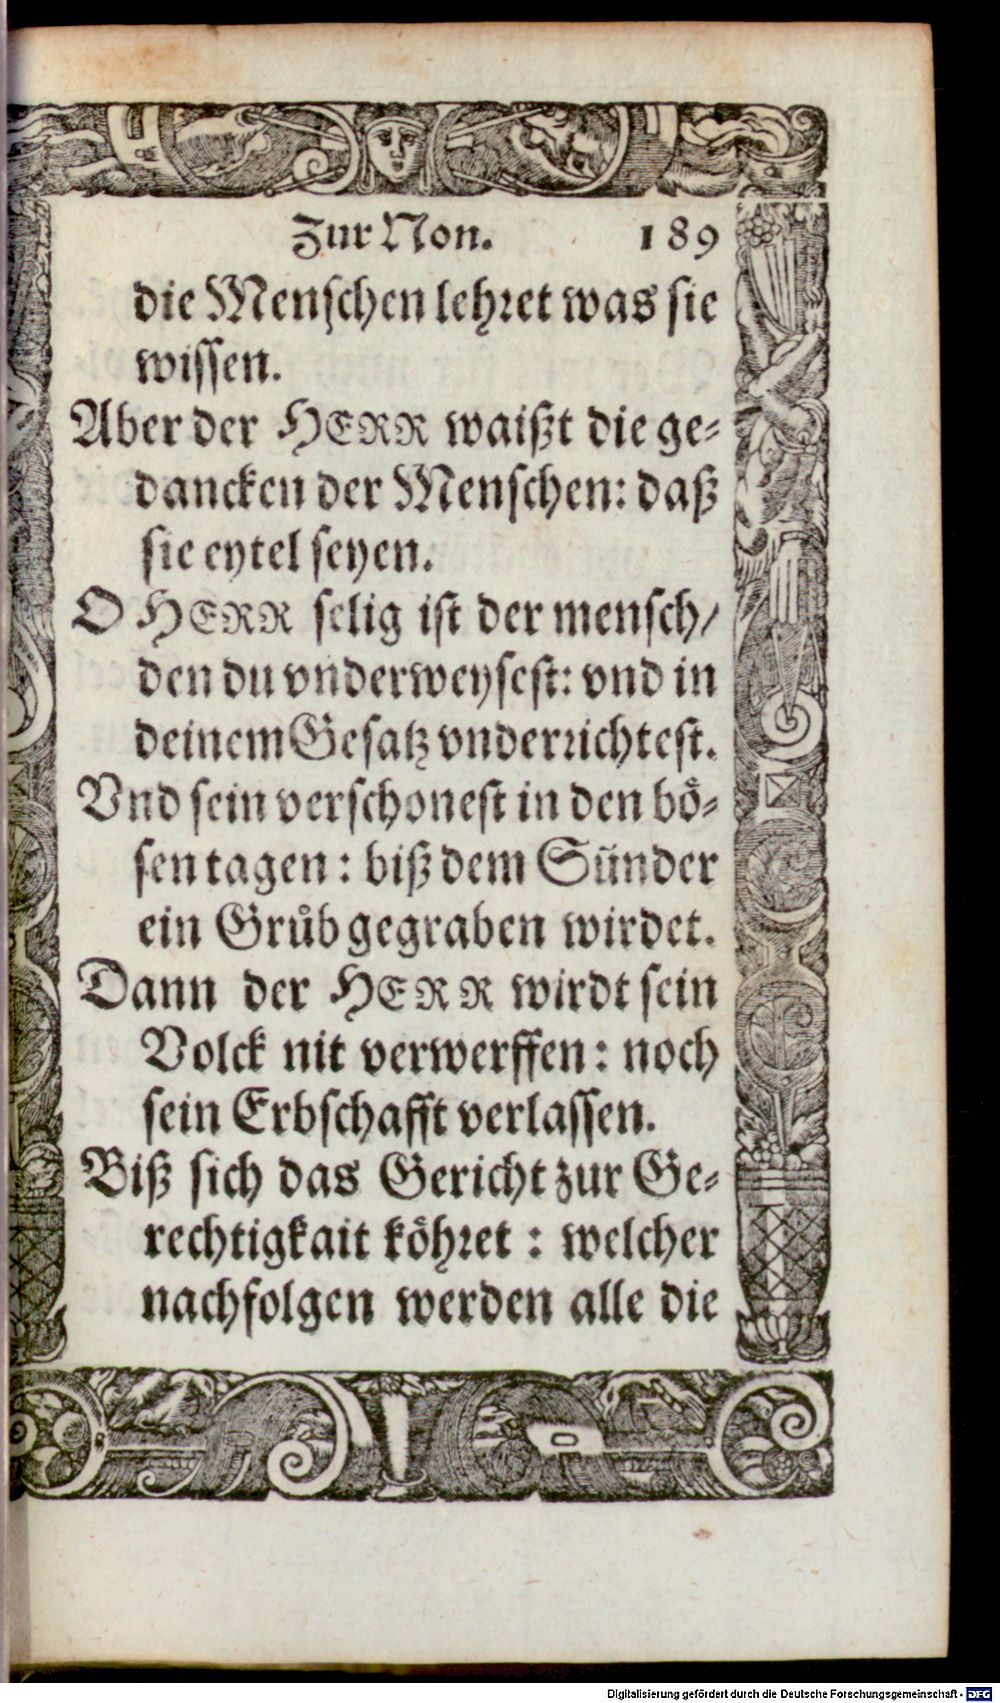 Zur Non. 189
die Menschen lehret was sie
wissen.
Aber der HERR waißt die ge-
dancken der Menschen: daß
sie eytel seyen.
O HERR selig ist der mensch/
den du vnderweysest: vnd in
deinem Gesatz vnderrichtest.
Vnd sein verschonest in den bö-
sen tagen: biß dem Sünder
ein Grůb gegraben wirdet.
Dann der HERR wirdt sein
Volck nit verwerffen: noch
sein Erbschafft verlassen.
Biß sich das Gericht zur Ge-
rechtigkait köhret: welcher
nachfolgen werden alle die
Digitalisierung gefördert durch die Deutsche Forschungsgemeinschaft - DFG